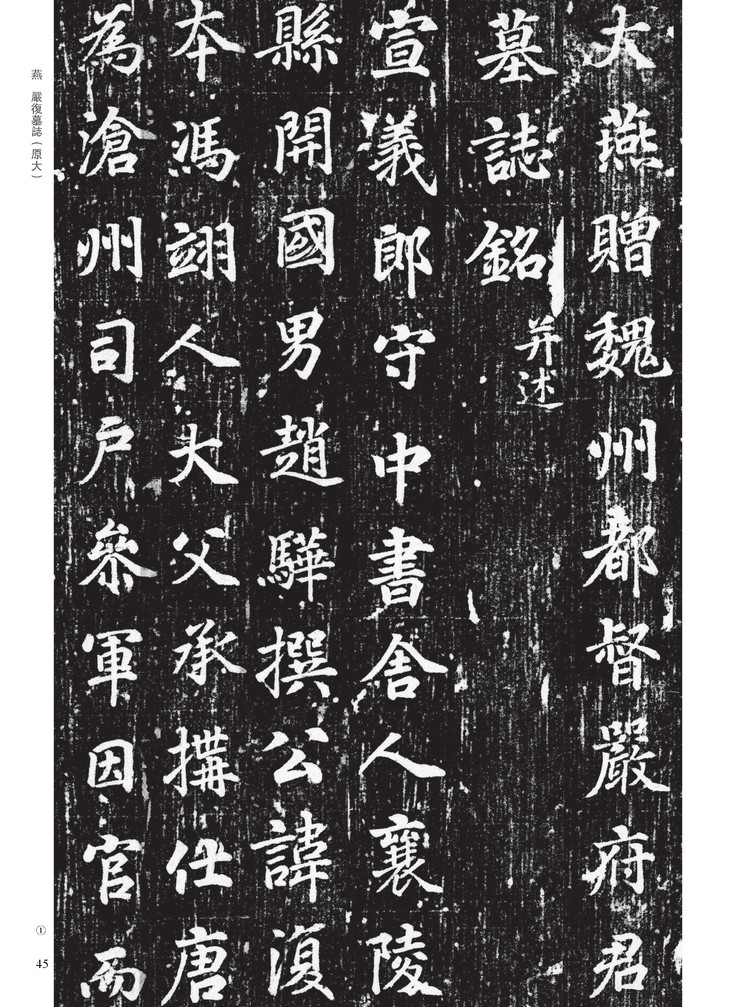 大燕贈魏州都督嚴府君
墓誌銘并述
宣義郎守中書舍人襄陵
縣開國男趙驊撰公諱復
本馮翊人大父承搆仕唐
為滄州司戶參軍因官而
燕 嚴復墓誌（原大）
①
45